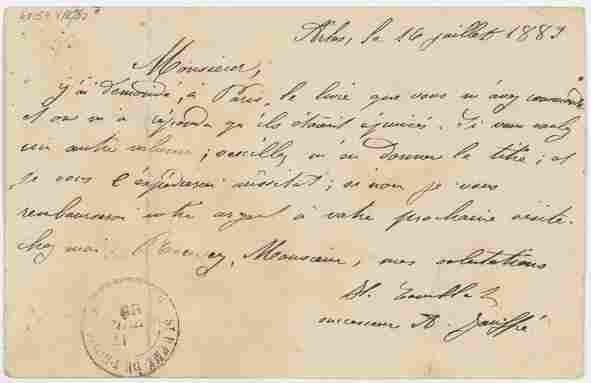 Arles, le 16 juillet 1883
Monsieur,
j'ai demandé, à Paris, le livre que vous m'avez commandé
et on m'a répondu qu'ils étaient épuisés. Si vous voulez
un autre volume; veuillez m'en donner le titre; et
je vous l'expédierai aussitôt; sinon je vous
rembourserai votre argent à votre prochaine visite
chez moi. Recevez, Monsieur, mes salutations
successeur A. Jouffré